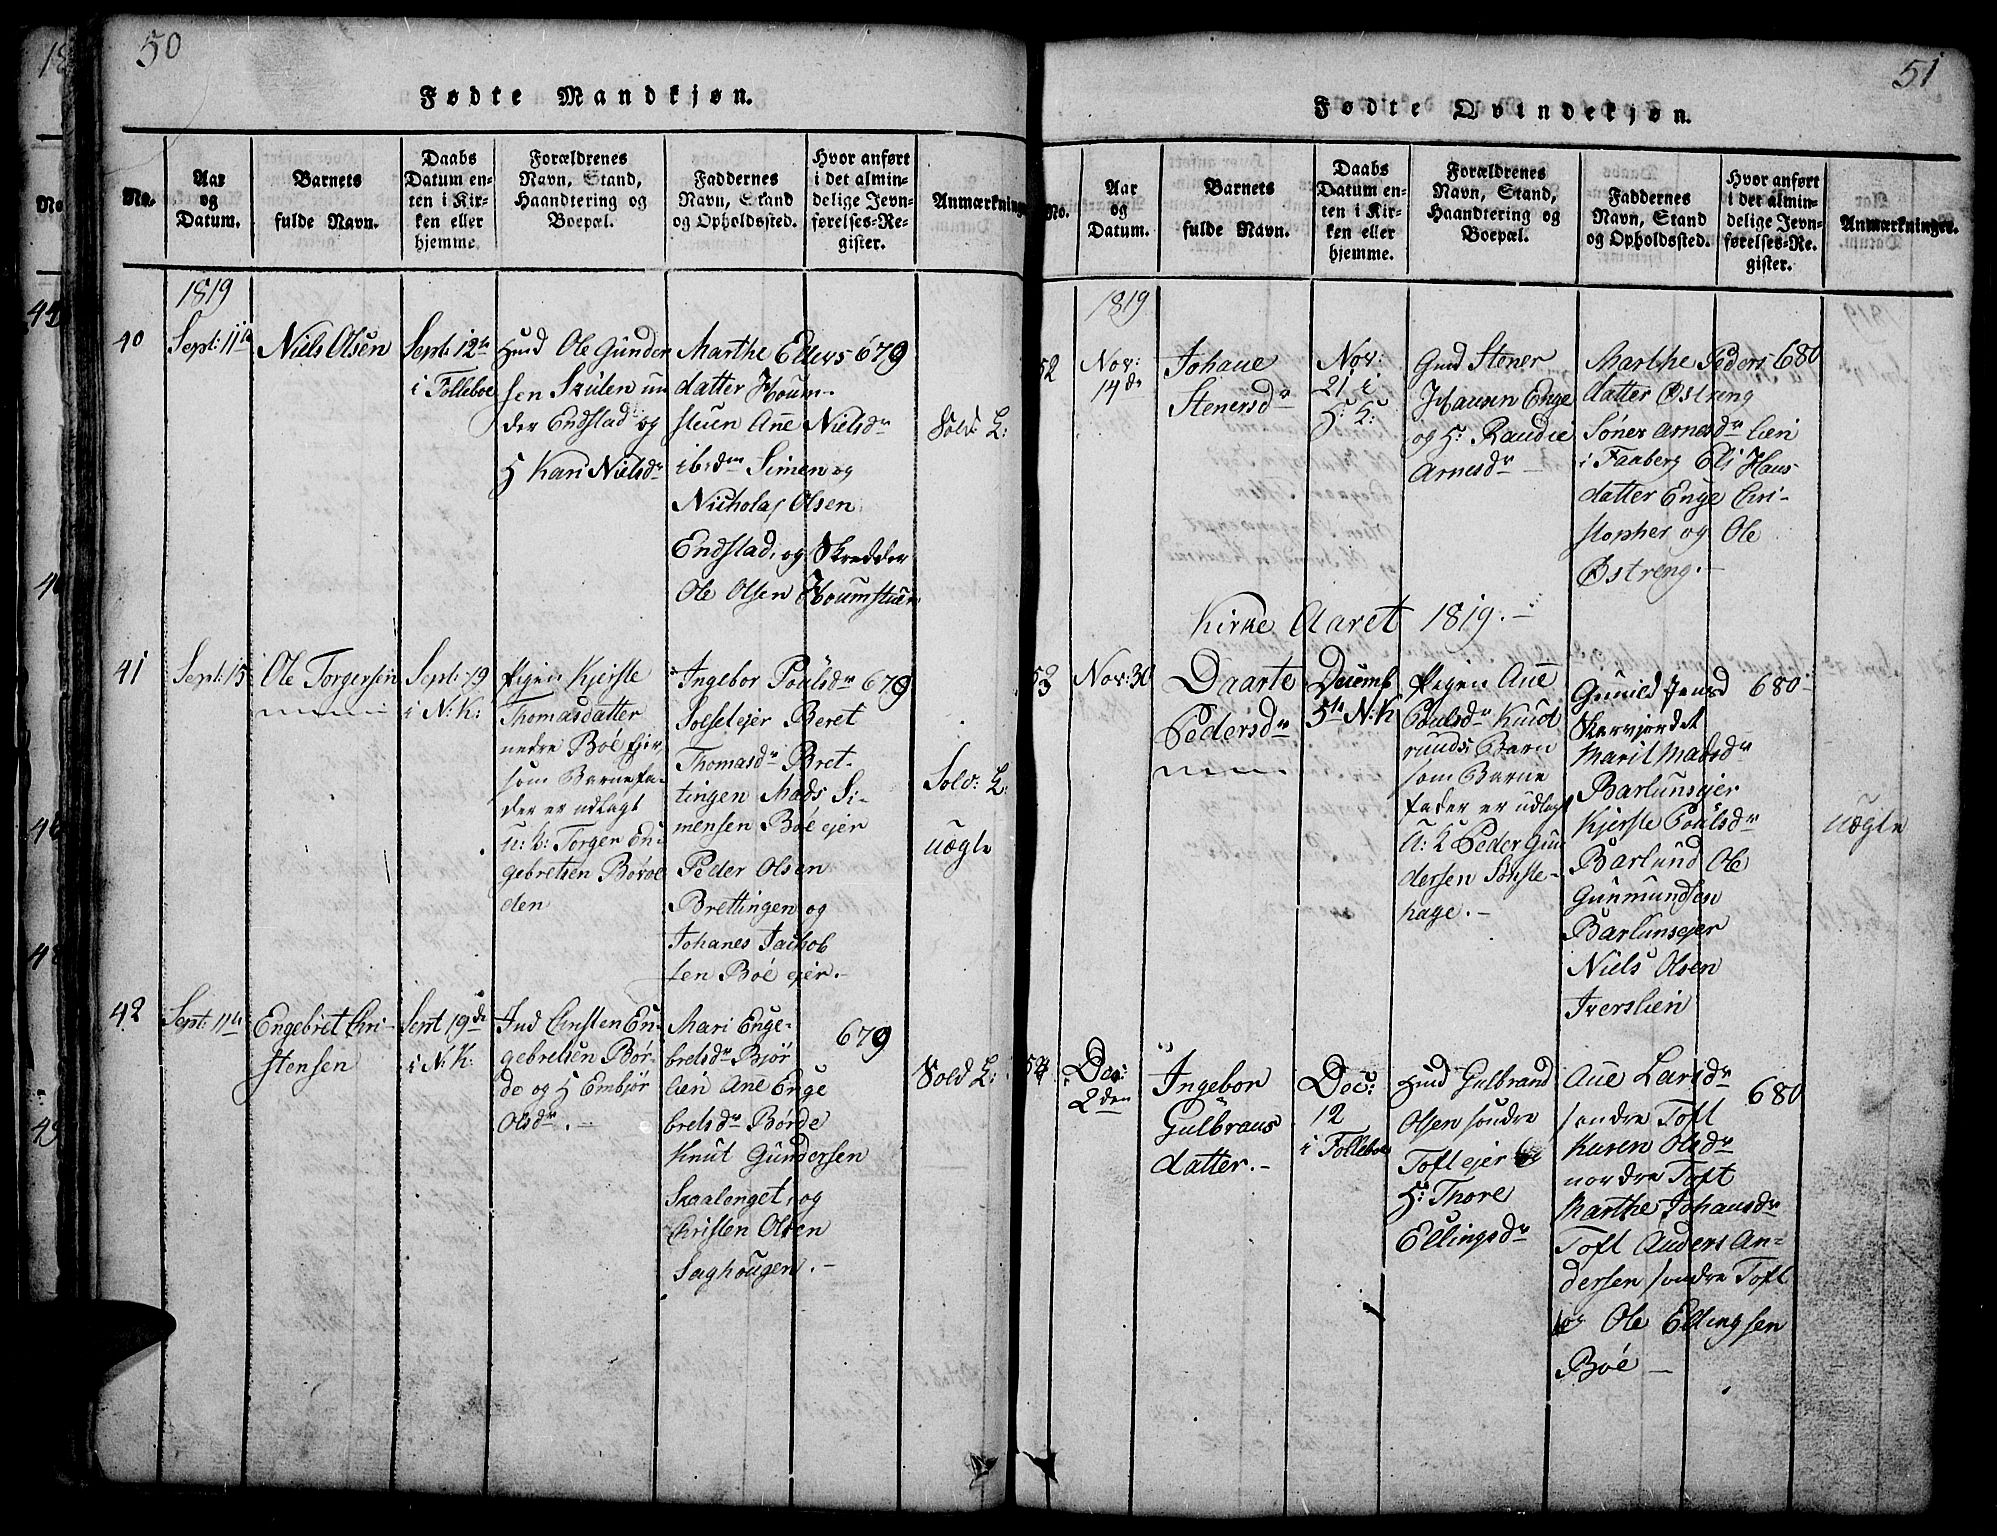 50
Fødte Mandkjøn.
No.
Aar
og
Datum.
Barnets
fulde Navn.
Daabs
Datum en-
ten i Kir-
ken eller
hjemme.
Forældrenes
Navn, Stand,
Haandtering og
Boepæl.
Faddernes
Navn, Stand
og Opholdssted.
Hvor anført
i det almin-
delige Jevn-
førelses-Re-
gister.
Anmærkning
1819
40
Sept: 11te
Niels Olsen
Sept: 12te
i Folleboe
Hmd Ole Gunder
sen Skulen un
der Endstad og
H Kari Nielsdr
Marthe Ellevs
datter Houm-
stuen Ane Nielsdr
ibidm Simen og
Nicholaj Olsen
Endstad, og Skredder
Ole Olsen Houmstuen
679
Sold: L:
41
Sept: 15
Ole Torgersen
Sept: 19
i N: K:
Pigen Kjerste
Thomasdatter
nedre Böe Ejer
som Barnefa-
der er udlagt
U: K: Torger En
gebretsen Böroe
den
Ingebor Poulsdr
Solsetejer Beret
Thomasdr Bret-
tingen Mads Si-
mensen Böe ejer
Peder Olsen
Brettingen og
Johanes Jachob
sen Böe ejer.-
679
Sold: L:
uægte
42
Sept: 11te
Engebret Chri-
stensen
Sept 19de
i N: K:
Ind Christen En-
gebretsen Bör-
de og H Embjör
Olsdr.-
Mari Enge-
bretsdr Björ
lien Ane Enge
bretsdr Börde
Knut Gundersen
Skaalenget, og
Christen Olsen
Saghougen.-
679
Sold L:
51
Fødte Qvindekjøn.
No.
Aar
og
Datum.
Barnets
fulde Navn.
Daabs
Datum en-
ten i Kir-
ken eller
hjemme.
Forældrenes
Navn, Stand,
Haandtering og
Boepæl.
Faddernes
Navn, Stand
og Opholdssted.
Hvor anført
i det almin-
delige Jevn-
førelses-Re-
gister.
Anmærkninger.
1819
52
Nov:
14de
Johane
Stenersdr
Nov:
21 i
H: K:
Gmd Stener
Hansen Enge
og H: Randie
Arnesdr
Marthe Peders
datter Östreng
Söner Arnesdr Lien
i Faaberg Eli Hans
datter Enge Chri-
stopher og Ole
Östreng.-
680
Kirke Aaret 1819.-
53
Nov: 30
Daarte
Pedersdr
Decemb
5te N: K
Pigen Ane
Poulsdr Knut
ruuds Barn
som Barne
fader er udlagt
U: K Peder Gun
dersen Sönste-
hage.-
Gunild Jensd
Skarvjordet
Marit Madsdr
Barlunsejer
Kjerste Poulsdr
Barlund Ole
Gunmundsen
Barlunsejer
Niels Olsen
Iverslien
680
uægte
54
Dec:
2den
Ingebor
Gulbrans
datter.-
Dec:
12
i Folleboe
Hmd Gulbrand
Olsen söndre
Toft ejer og
H: Thore
Ellingsdr
Ane Larsdr
söndre Toft
Karen Olsdr
nordre Toft
Marthe Johansdr
Toft Anders An-
dersen söndre Toft
og Ole Ellingsen
Böe -
680